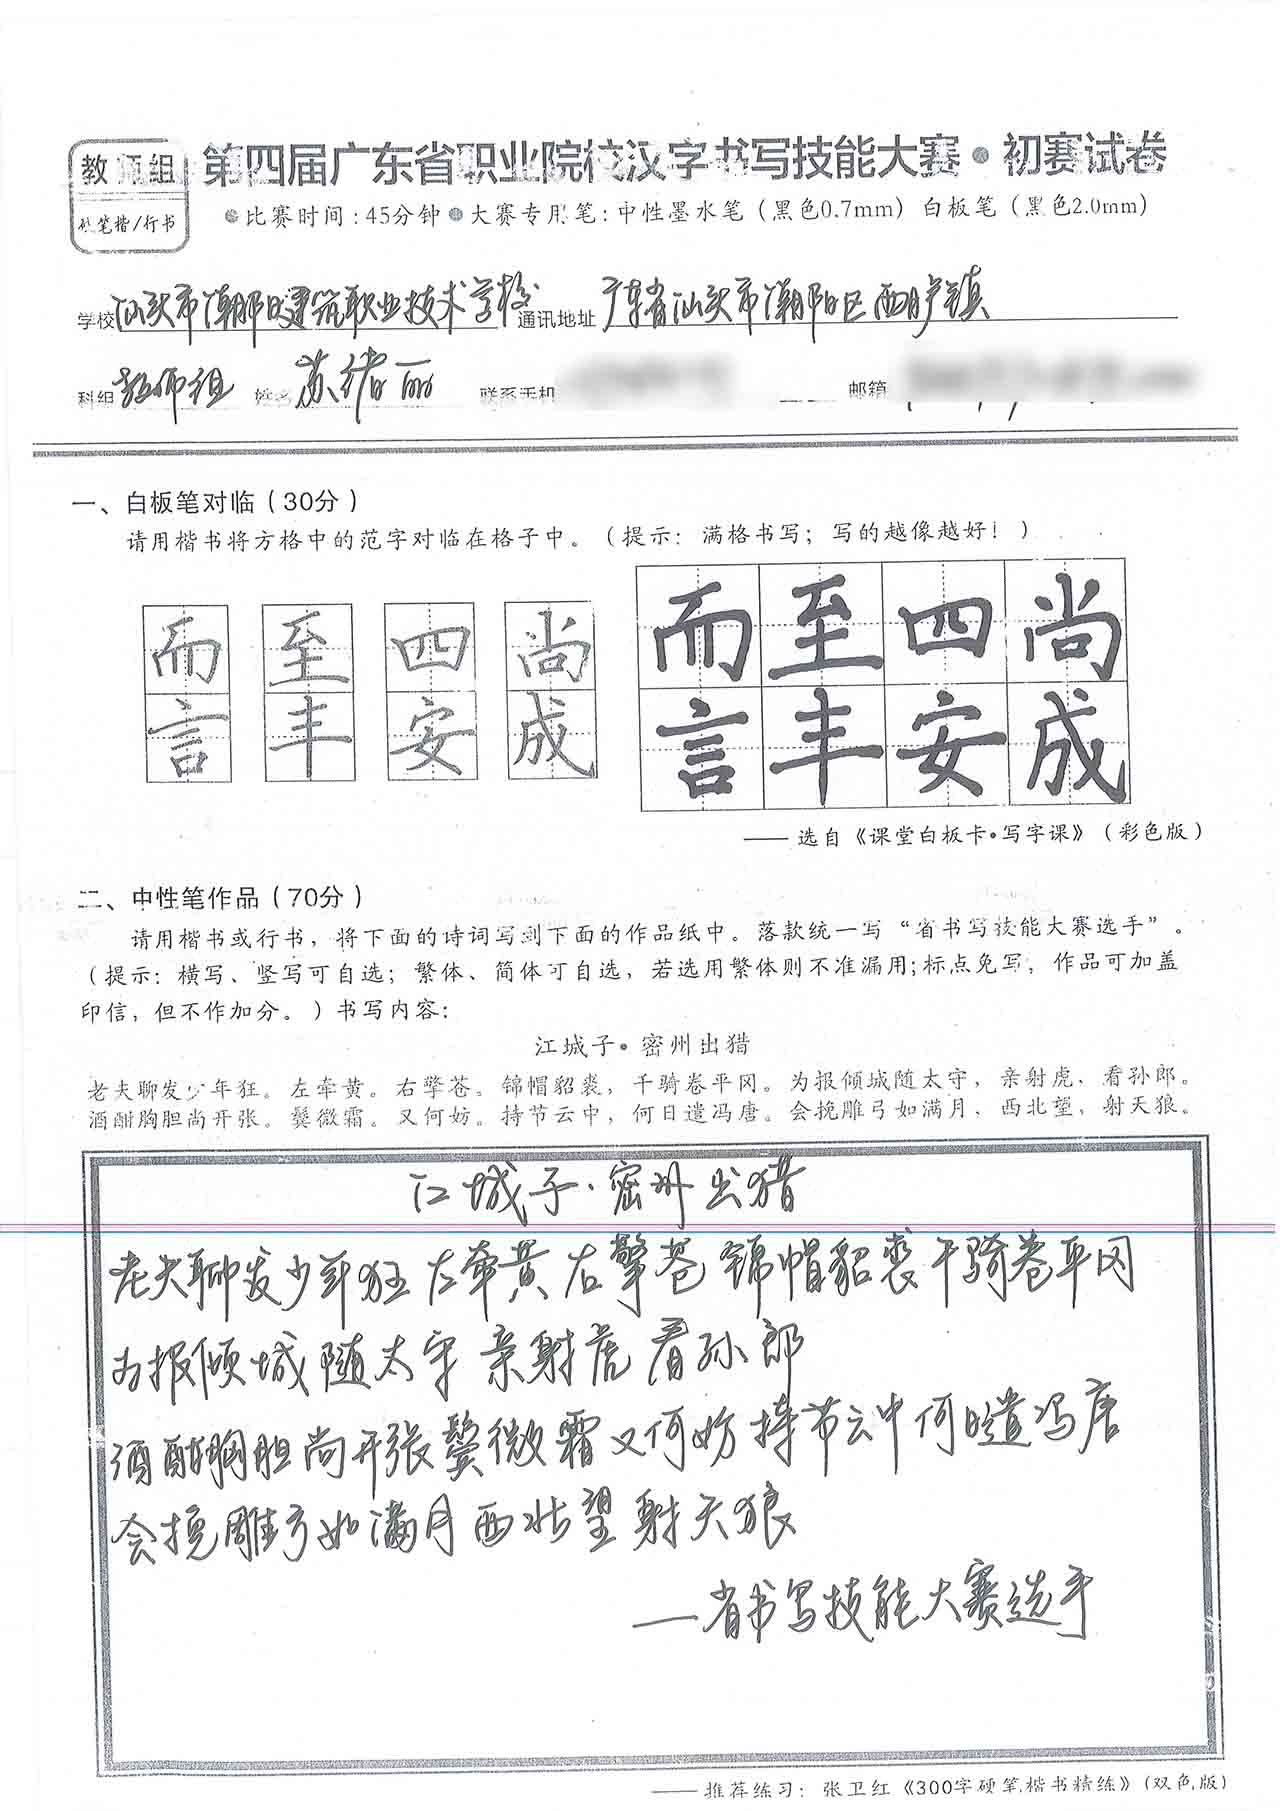 教师组
硬笔楷/行书
第四届广东省职业院校汉字书写技能大赛·初赛试卷
●比赛时间：45分钟●大赛专用笔：中性墨水笔（黑色0.7mm）白板笔（黑色2.0mm）
学校 汕头市潮阳建筑职业技术学校 通讯地址 广东省汕头市潮阳区西胪镇
科组 教师组 姓名 苏绪丽 联系手机 邮箱
一、白板笔对临（30分）
请用楷书将方格中的范字对临在格子中。（提示：满格书写；写的越像越好！）
而 至 四 尚 而 至 四 尚
言 丰 安 成 言 丰 安 成
——选自《课堂白板卡·写字课》（彩色版）
二、中性笔作品（70分）
请用楷书或行书，将下面的诗词写到下面的作品纸中。落款统一写“省书写技能大赛选手”。
（提示：横写、竖写可自选；繁体、简体可自选，若选用繁体则不准漏用；标点免写，作品可加盖
印信，但不作加分。）书写内容：
江城子·密州出猎
老夫聊发少年狂。左牵黄。右擎苍。锦帽貂裘，千骑卷平冈。为报倾城随太守，亲射虎，看孙郎。
酒酣胸胆尚开张。鬓微霜。又何妨。持节云中，何日遣冯唐。会挽雕弓如满月，西北望，射天狼。
江城子·密州出猎
老夫聊发少年狂 左牵黄 右擎苍 锦帽貂裘 千骑卷平冈
为报倾城随太守 亲射虎 看孙郎
酒酣胸胆尚开张 鬓微霜 又何妨 持节云中 何日遣冯唐
会挽雕弓如满月 西北望 射天狼
—省书写技能大赛选手
——推荐练习：张卫红《300字硬笔楷书精练》（双色版）